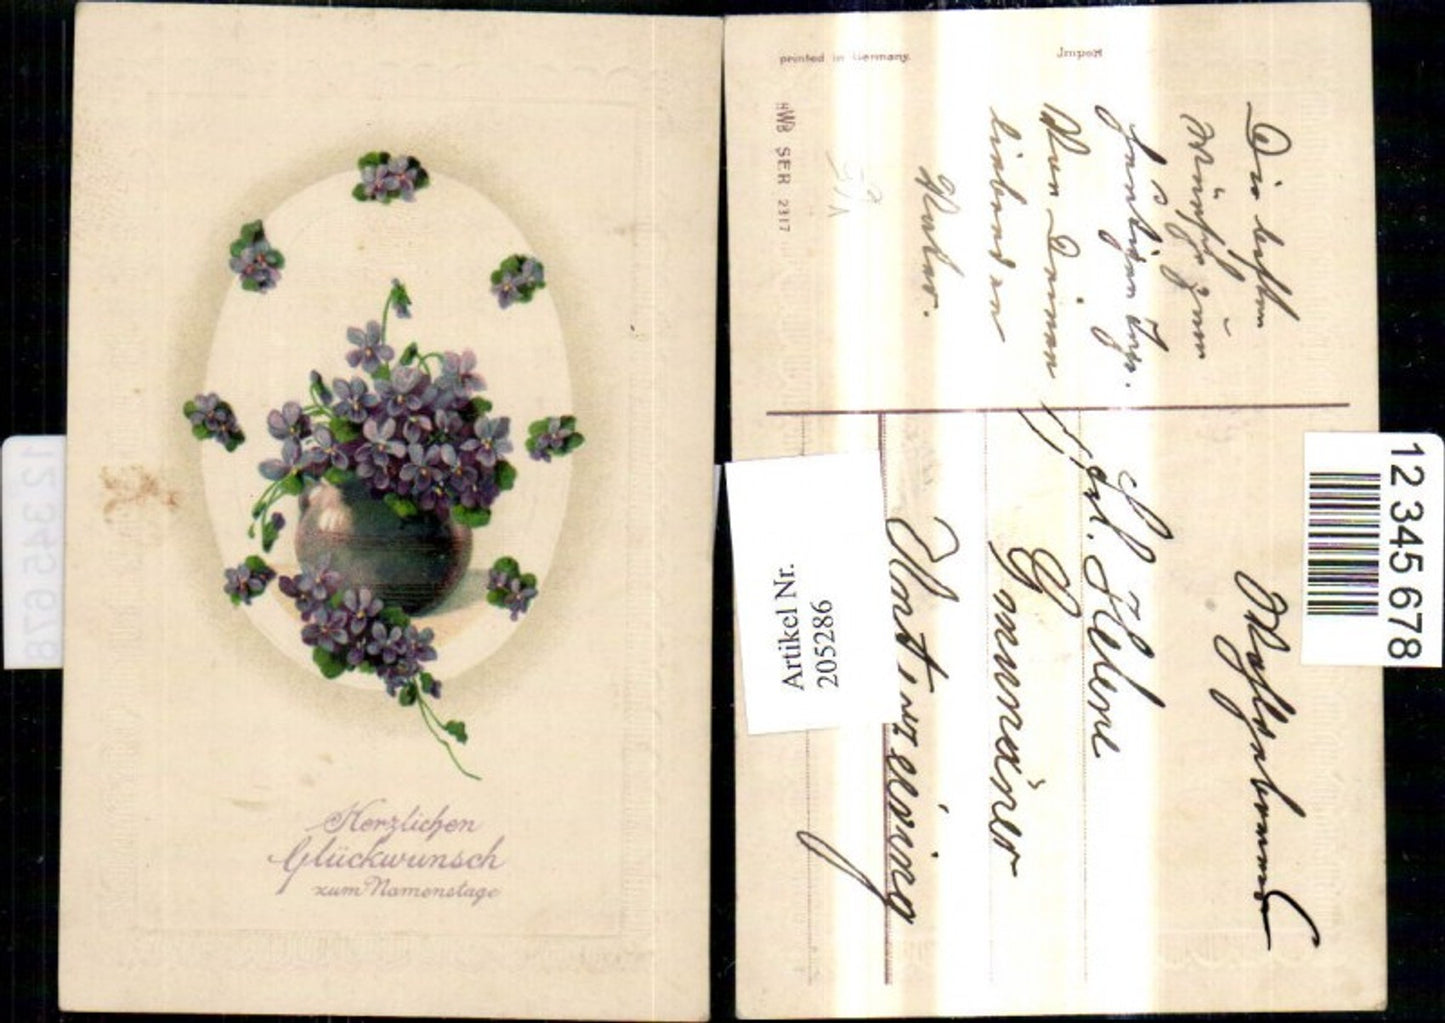 Herzlichen
Glückwunsch
zum Namenstage
printed in Germany.
Import
HWB SER 2317
Die besten
Wünsche zum
heutigen Tage.
Von Deinem
liebenden
Vater.
Frl. Helene
Gmunden
Artikel Nr.
205286
12 345 678